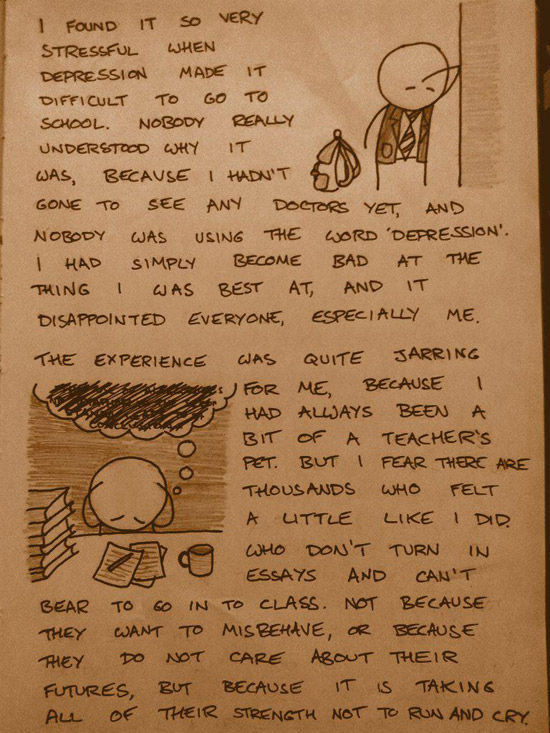 I FOUND IT SO VERY
STRESSFUL WHEN
DEPRESSION MADE IT
DIFFICULT TO GO TO
SCHOOL. NOBODY REALLY
UNDERSTOOD WHY IT
WAS, BECAUSE I HADN'T
GONE TO SEE ANY DOCTORS YET, AND
NOBODY WAS USING THE WORD 'DEPRESSION'.
I HAD SIMPLY BECOME BAD AT THE
THING I WAS BEST AT, AND IT
DISAPPOINTED EVERYONE, ESPECIALLY ME.
THE EXPERIENCE WAS QUITE JARRING
FOR ME, BECAUSE I
HAD ALWAYS BEEN A
BIT OF A TEACHER'S
PET. BUT I FEAR THERE ARE
THOUSANDS WHO FELT
A LITTLE LIKE I DID.
WHO DON'T TURN IN
ESSAYS AND CAN'T
BEAR TO GO IN TO CLASS. NOT BECAUSE
THEY WANT TO MISBEHAVE, OR BECAUSE
THEY DO NOT CARE ABOUT THEIR
FUTURES, BUT BECAUSE IT IS TAKING
ALL OF THEIR STRENGTH NOT TO RUN AND CRY.